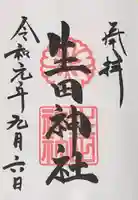 奉拝
生田神社
令和元年九月六日